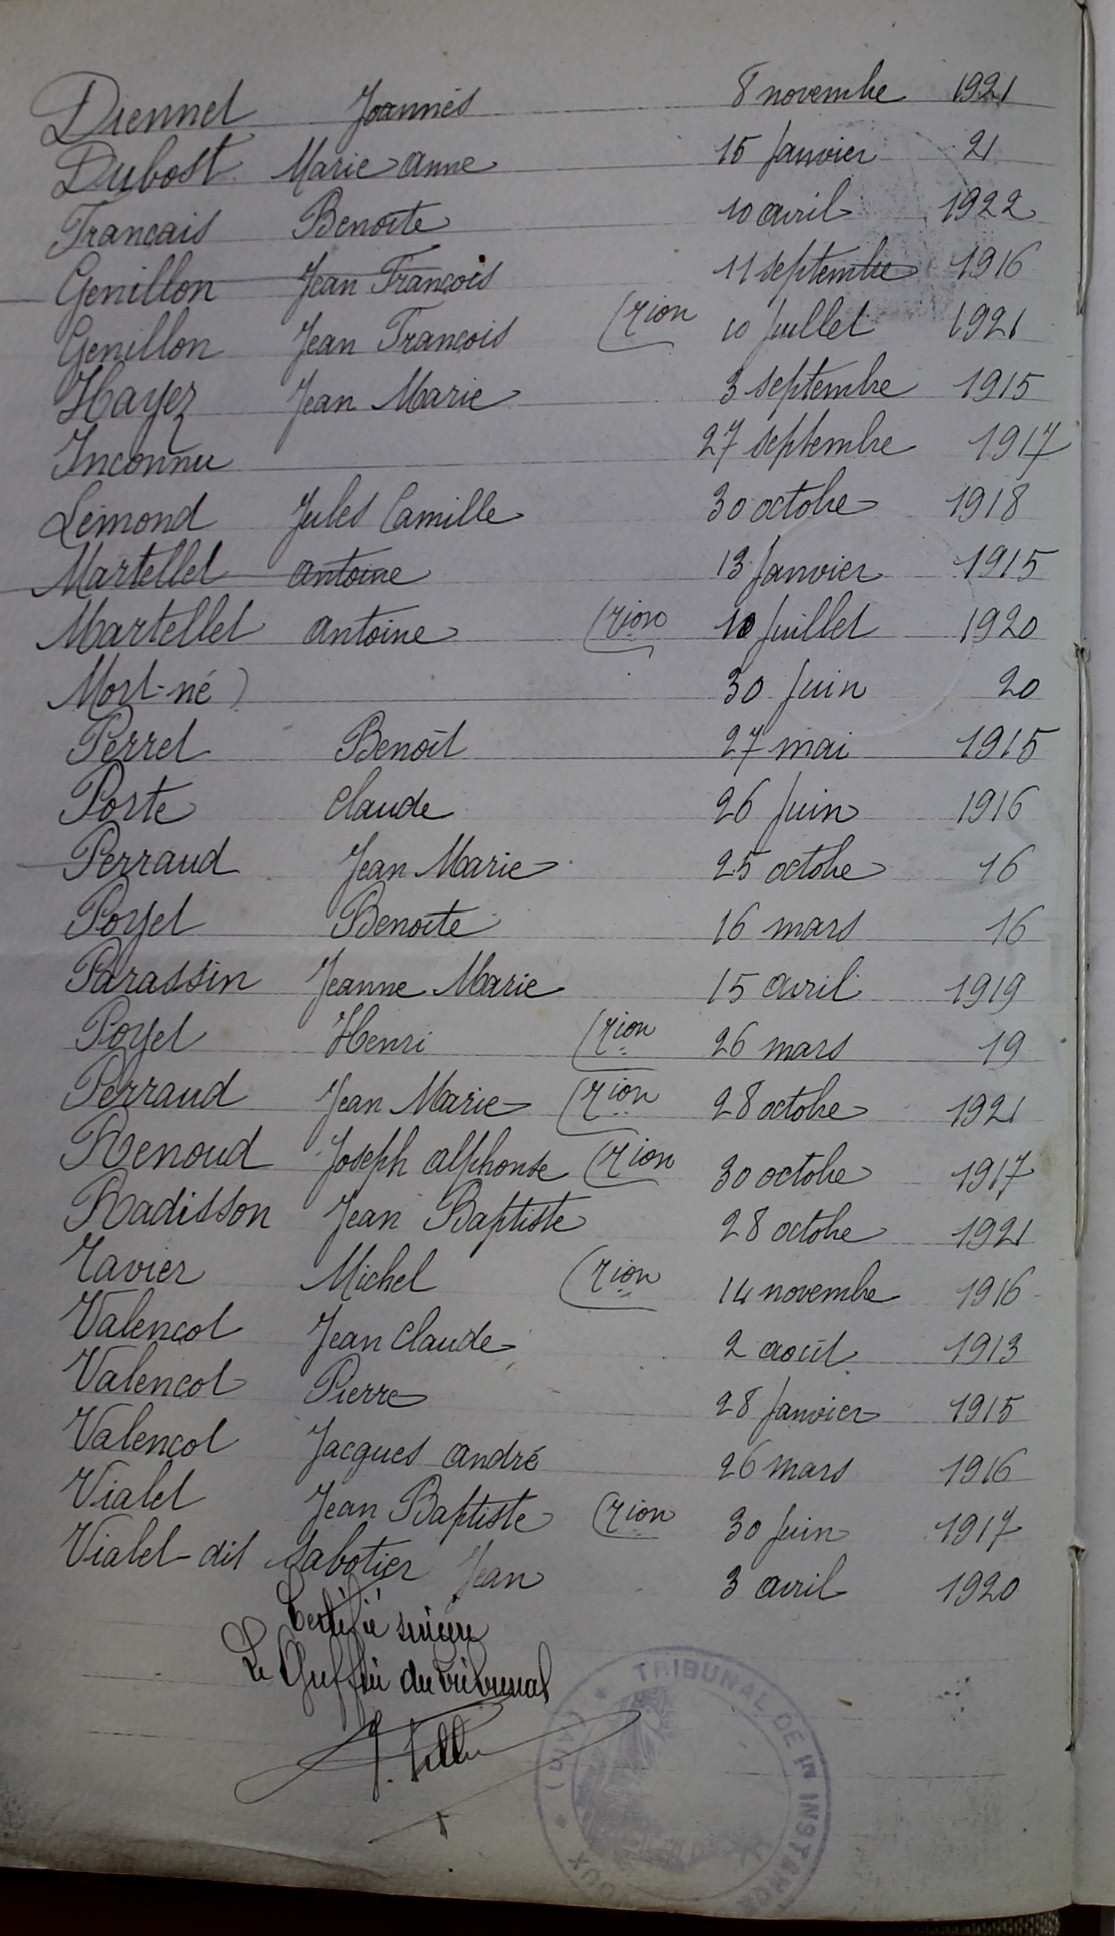 Diennet Joannès 8 novembre 1921
Dubost Marie Anne 15 Janvier 21
Francais Benoite 10 avril 1922
Genillon Jean François 11 septembre 1916
Genillon Jean François (Xion 10 Juillet 1921
Hayez Jean Marie 3 septembre 1915
Inconnu 27 septembre 1917
Lémond Jules Camille 30 octobre 1918
Martellet Antoine 13 Janvier 1915
Martellet Antoine (Xion 10 Juillet 1920
Mort-né) 30 Juin 20
Perret Benoit 27 mai 1915
Porte Claude 26 Juin 1916
Perraud Jean Marie 25 octobre 16
Poyet Benoite 16 mars 16
Parassin Jeanne Marie 15 avril 1919
Poyet Henri (Xion 26 mars 19
Perraud Jean Marie (Xion 28 octobre 1921
Renoud Joseph Alphonse (Xion 30 octobre 1917
Radisson Jean Baptiste 28 octobre 1921
Tavier Michel (Xion 14 novembre 1916
Valencot Jean Claude 2 août 1913
Valencot Pierre 28 Janvier 1915
Valencot Jacques André 26 mars 1916
Vialet Jean Baptiste (Xion 30 Juin 1917
Vialet-dit Sabotier Jean 3 avril 1920
Certifié sincère
Le Greffier du tribunal
TRIBUNAL DE 1RE INSTANCE
(AIN)